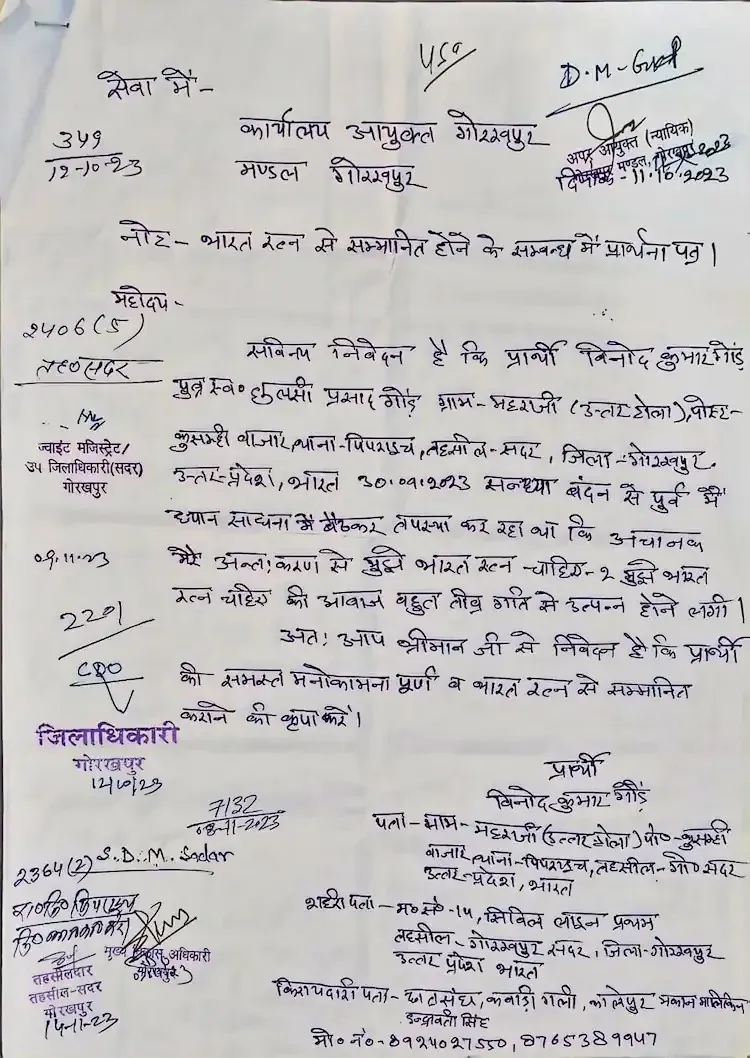 450
D.M - Gkp
सेवा में -
349
12-10-23
कार्यालय आयुक्त गोरखपुर
मण्डल गोरखपुर
अपर आयुक्त (न्यायिक)
गोरखपुर मण्डल, गोरखपुर
दिनांक - 11.10.2023
नोट - भारत रत्न से सम्मानित होने के सम्बन्ध में प्रार्थना पत्र।
महोदय -
2406(5)
तह० सदर
सविनय निवेदन है कि प्रार्थी विनोद कुमार गौंड़
पुत्र स्व० तुलसी प्रसाद गौंड़ ग्राम - महराजी (उत्तर टोला), पोस्ट -
कुसम्ही बाजार, थाना - पिपराइच, तहसील - सदर, जिला - गोरखपुर.
उत्तर-प्रदेश, भारत 30.09.2023 सन्ध्या बंदन से पूर्व मैं
ध्यान साधना में बैठकर तपस्या कर रहा था कि अचानक
मेरे अन्त: करण से मुझे भारत रत्न चाहिए - २ मुझे भारत
रत्न चाहिए की आवाज बहुत तीव्र गति से उत्पन्न होने लगी।
अत: आप श्रीमान जी से निवेदन है कि प्रार्थी
की समस्त मनोकामना पूर्ण व भारत रत्न से सम्मानित
कराने की कृपा करें।
ज्वाइंट मजिस्ट्रेट/
उप जिलाधिकारी (सदर)
गोरखपुर
09.11.23
2201
CDO
जिलाधिकारी
गोरखपुर
12/10/23
7132
08-11-2023
2364(2) S.D.M. Sadar
मुख्य विकास अधिकारी
गोरखपुर
तहसीलदार
तहसील - सदर
गोरखपुर
14-11-23
प्रार्थी
विनोद कुमार गौंड़
पता - ग्राम - महराजी (उत्तर टोला) पो० - कुसम्ही
बाजार, थाना - पिपराइच, तहसील - गो० सदर
उत्तर-प्रदेश, भारत
शहरी पता - म० सं० - 14, सिविल लाइन प्रथम
तहसील - गोरखपुर सदर, जिला - गोरखपुर
उत्तर प्रदेश भारत
किरायदारी पता - कबाड़ी गली, मकान मालकिन
इन्द्रावती सिंह
मो० नं० - 8924027550, 8765389947